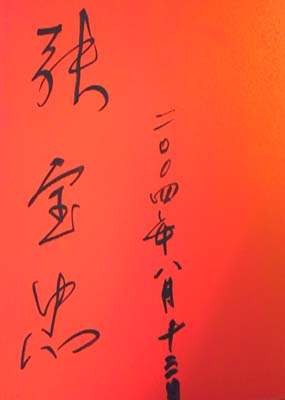 张宝忠
二〇〇四年八月十三日